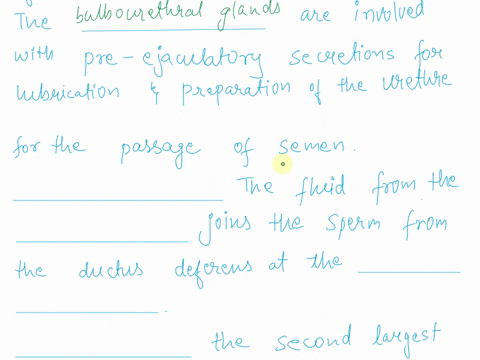 The bulbourethral glands are involved
with pre-ejaculatory secretions for
lubrication & preparation of the urethre
for the passage of semen.
The fluid from the
joins the sperm from
the ductus deferens at the
.
the second largest